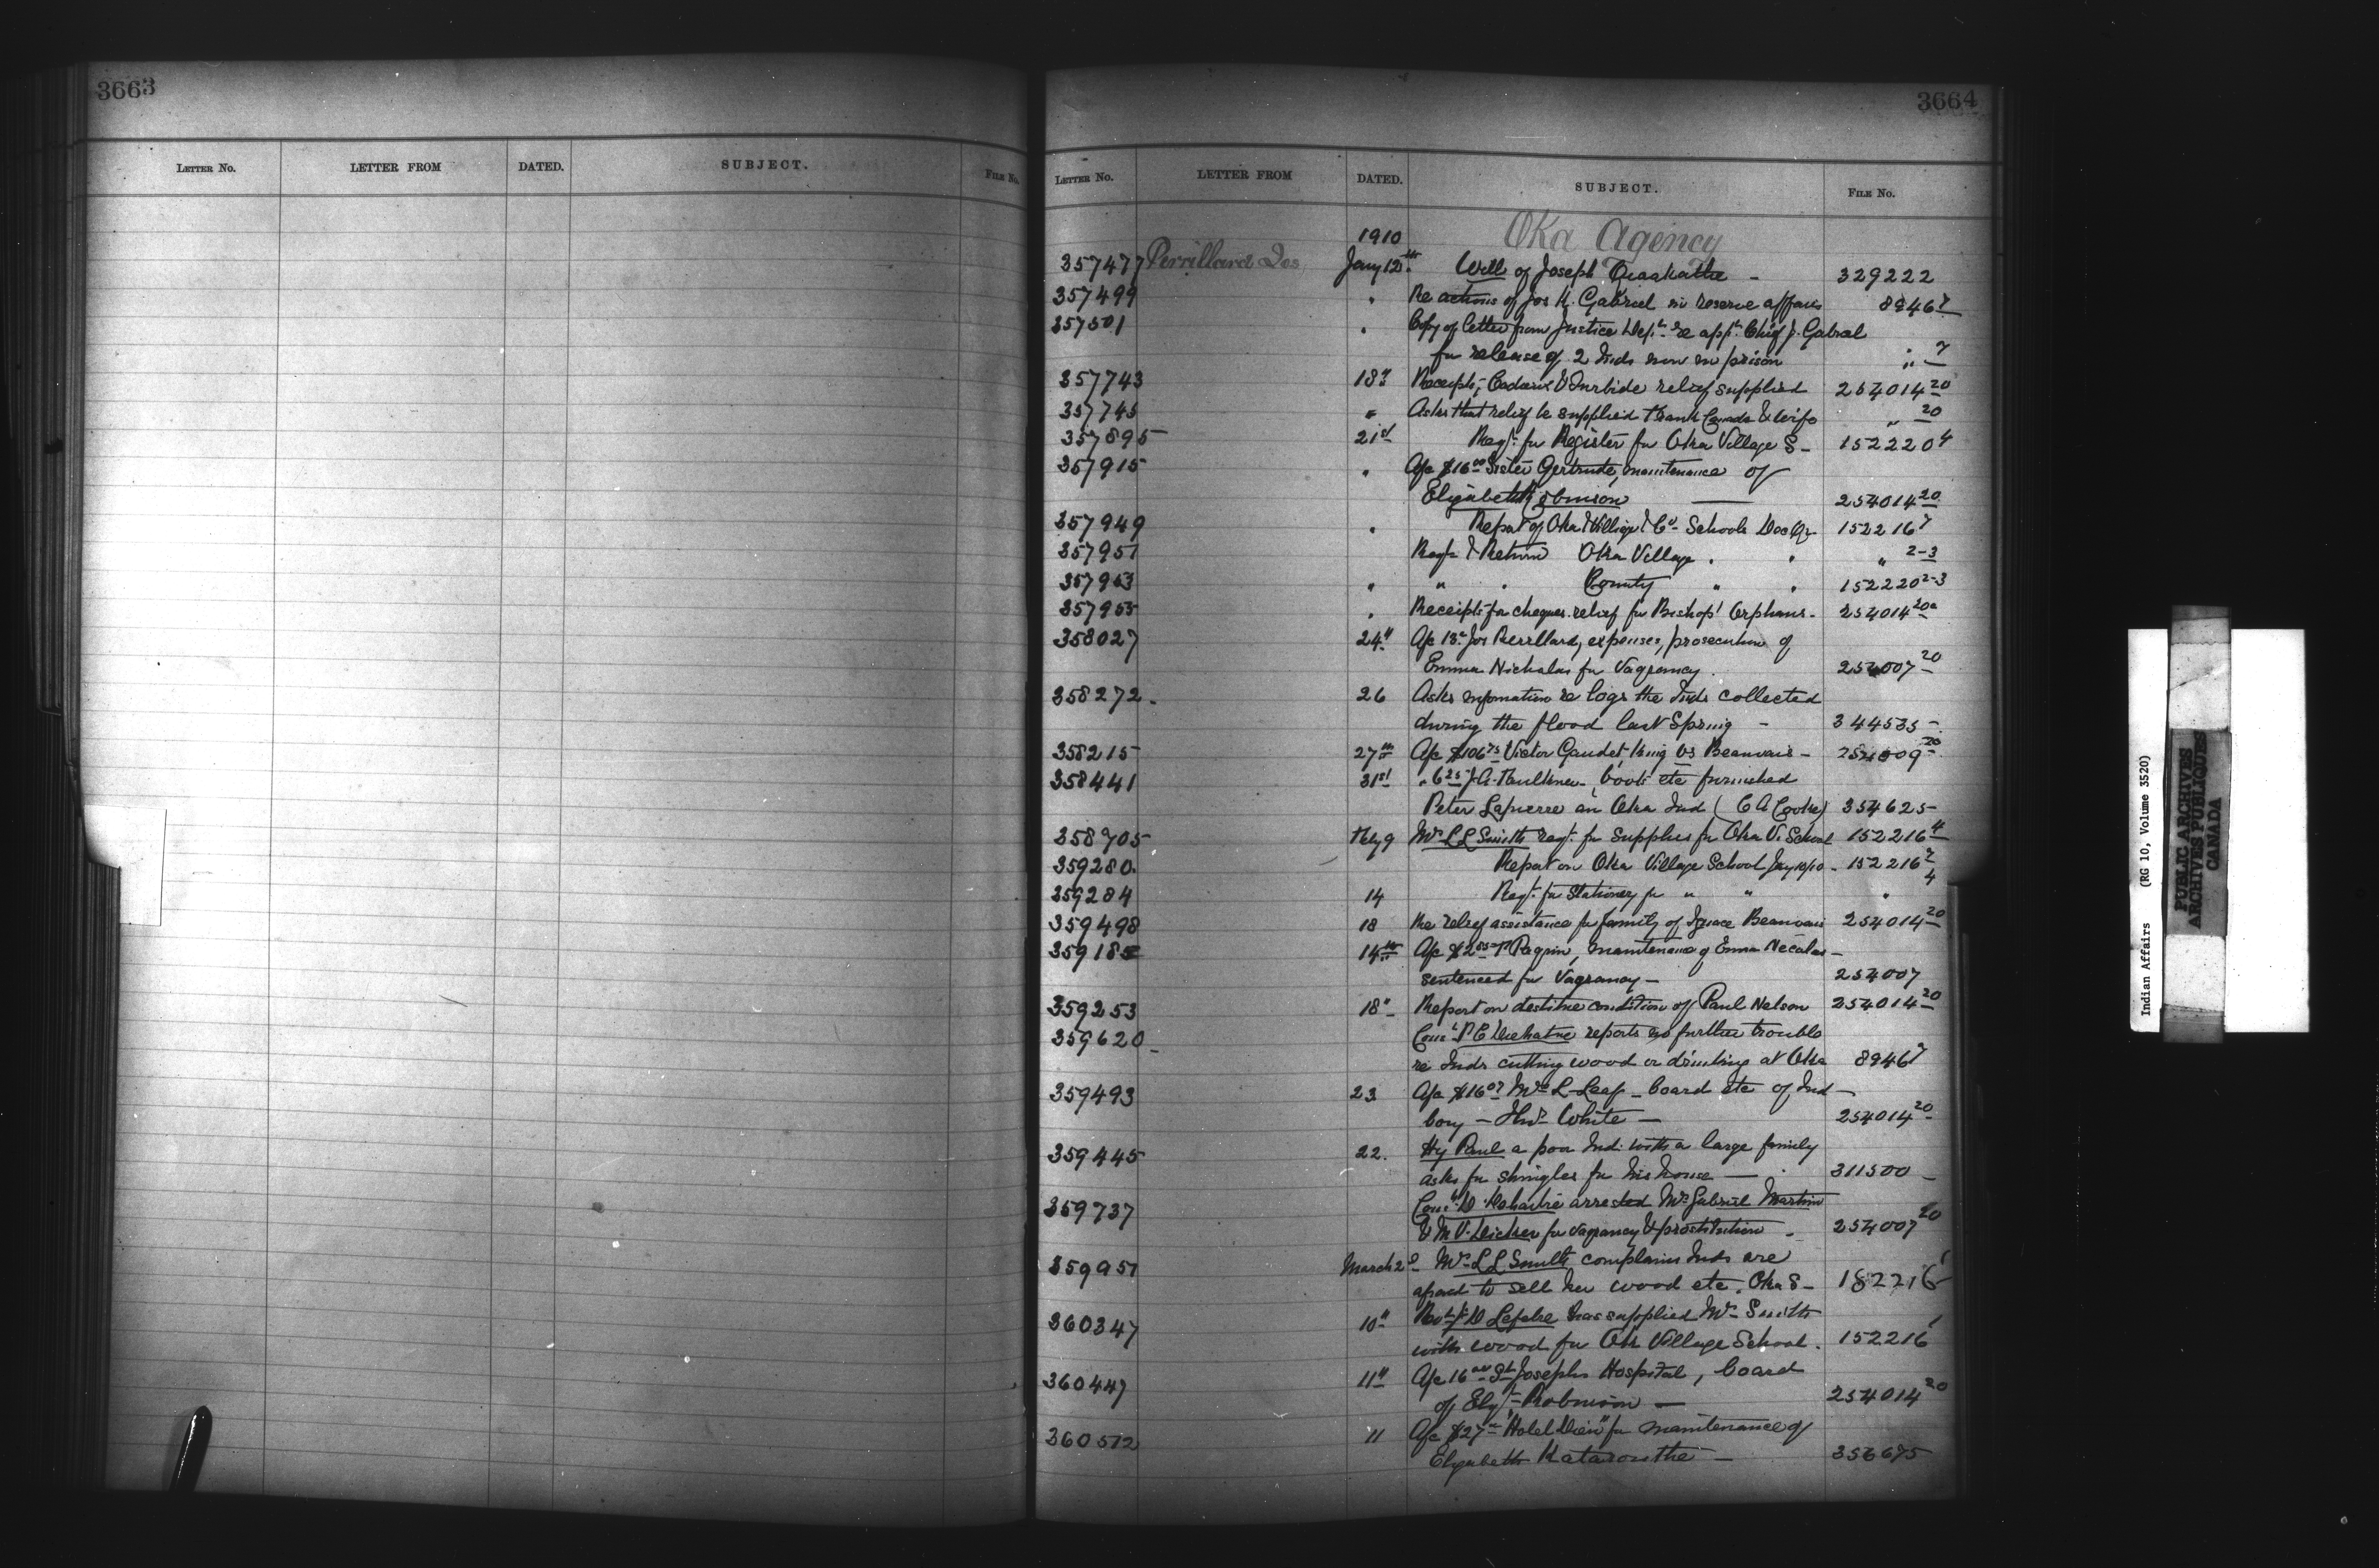 3663
LETTER No. LETTER FROM DATED. SUBJECT. FILE No.
3664
LETTER No. LETTER FROM DATED. SUBJECT. FILE No.
1910 Oka Agency
357477 Perrillard Jos Jany 12th Will of Joseph - 329222
357499 " Re actions of Jos K. Gabriel in reserve affairs 8946 7
357501 " Copy of letter from Justice Dept. re appn. Chief J. Gabriel
for release of 2 Inds now in prison " 7
357743 18th Receipts, & relief supplied 254014 20
357745 " Asks that relief be supplied Frank & wife " 20
357895 21st Reqt. for Register for Oka Village S- 152220 4
357915 " A/c $16.00 Sister Gertrude, maintenance of
Elizabeth Robinson 254014 20
357949 " Report of Oka Village & Co. Schools Dec Qr 152216 7
357951 Reqt. & Return Oka Village " " " 2-3
357953 " " " County " " 152220 2-3
357955 " Receipts for cheques relief for Bishop Orphans - 254014 20
358027 24th A/c Jos Perrillard, expenses, prosecution of
Emma Nicholas for Vagrancy. 254007 20
358272 - 26 Asks information re logs the Inds collected
during the flood last Spring - 344535 -
358215 27th A/c $106.75 Victor Gaudet, King vs Beauvais - 254009 20
358441 31st " 6.25 J.A. Faulkner - boots etc furnished
Peter Lapierre an Oka Ind (C A Cooke) 354625 -
358705 Feby 9 Mrs L L Smith reqt. for supplies for Oka Vi. School 152216 4
359280 Report on Oka Village School Jany 10/10 - 152216 7
359284 14 Reqt. for Stationery for " " " 4
359498 18 Re relief assistance for family of Ignace Beauvais 254014 20
359185 14th A/c $2.85 maintenance of Emma Necalas -
sentenced for Vagrancy - 254007
359253 18" Report on destitute condition of Paul Nelson 254014 20
359620 - Conl. P C reports no further trouble
re Inds cutting wood or drinking at Oka 8946 7
359493 23 A/c $16.07 Mrs L Leaf - board etc of Ind -
boy - Thos White - 254014 20
359445 22. Hy Paul a poor Ind. with a large family
asks for shingles for his house - 311500 -
359737 Conl. D. arrested Mrs Gabriel Martin
& M V. for vagrancy & prostitution - 254007 20
359951 March 2d - Mrs L L Smith complains Inds are
afraid to sell her wood etc. Oka S- 182216 1
360347 10" Revd. J D Lefebre has supplied Mrs Smith
with wood for Oka Village School. 152216 1
360447 11" A/c 16.00 St Josephs Hospital, board
of Elizth Robinson - 254014 20
360512 11 A/c $27 "Hotel Dieu" for maintenance of
Elizabeth Kataronthe - 356675
Indian Affairs (RG 10, Volume 3520)
PUBLIC ARCHIVES
ARCHIVES PUBLIQUES
CANADA